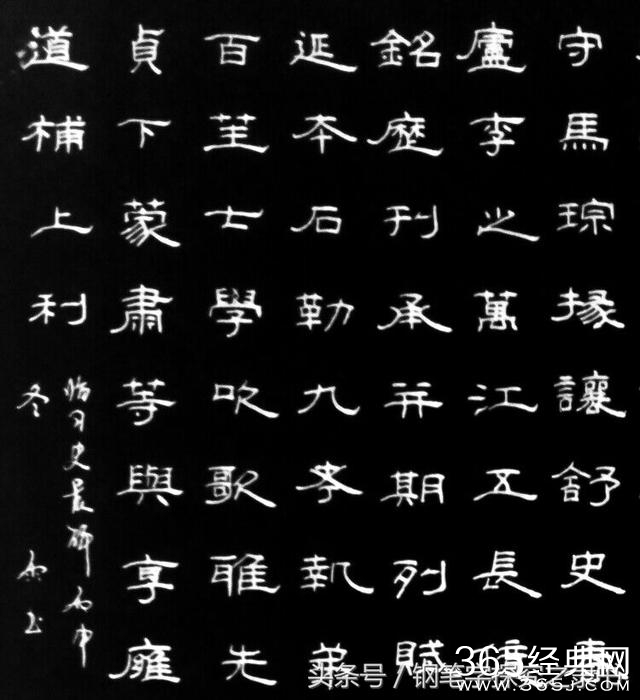 守馬琮掾讓舒史
廬李之萬江五長
銘歷刊承并期列賦
延本石勒九孝執弟
百士學吹歌雅先
貞下蒙肅等與享雍
道補上利
临习史晨碑丙申
冬
头条号
365经典网